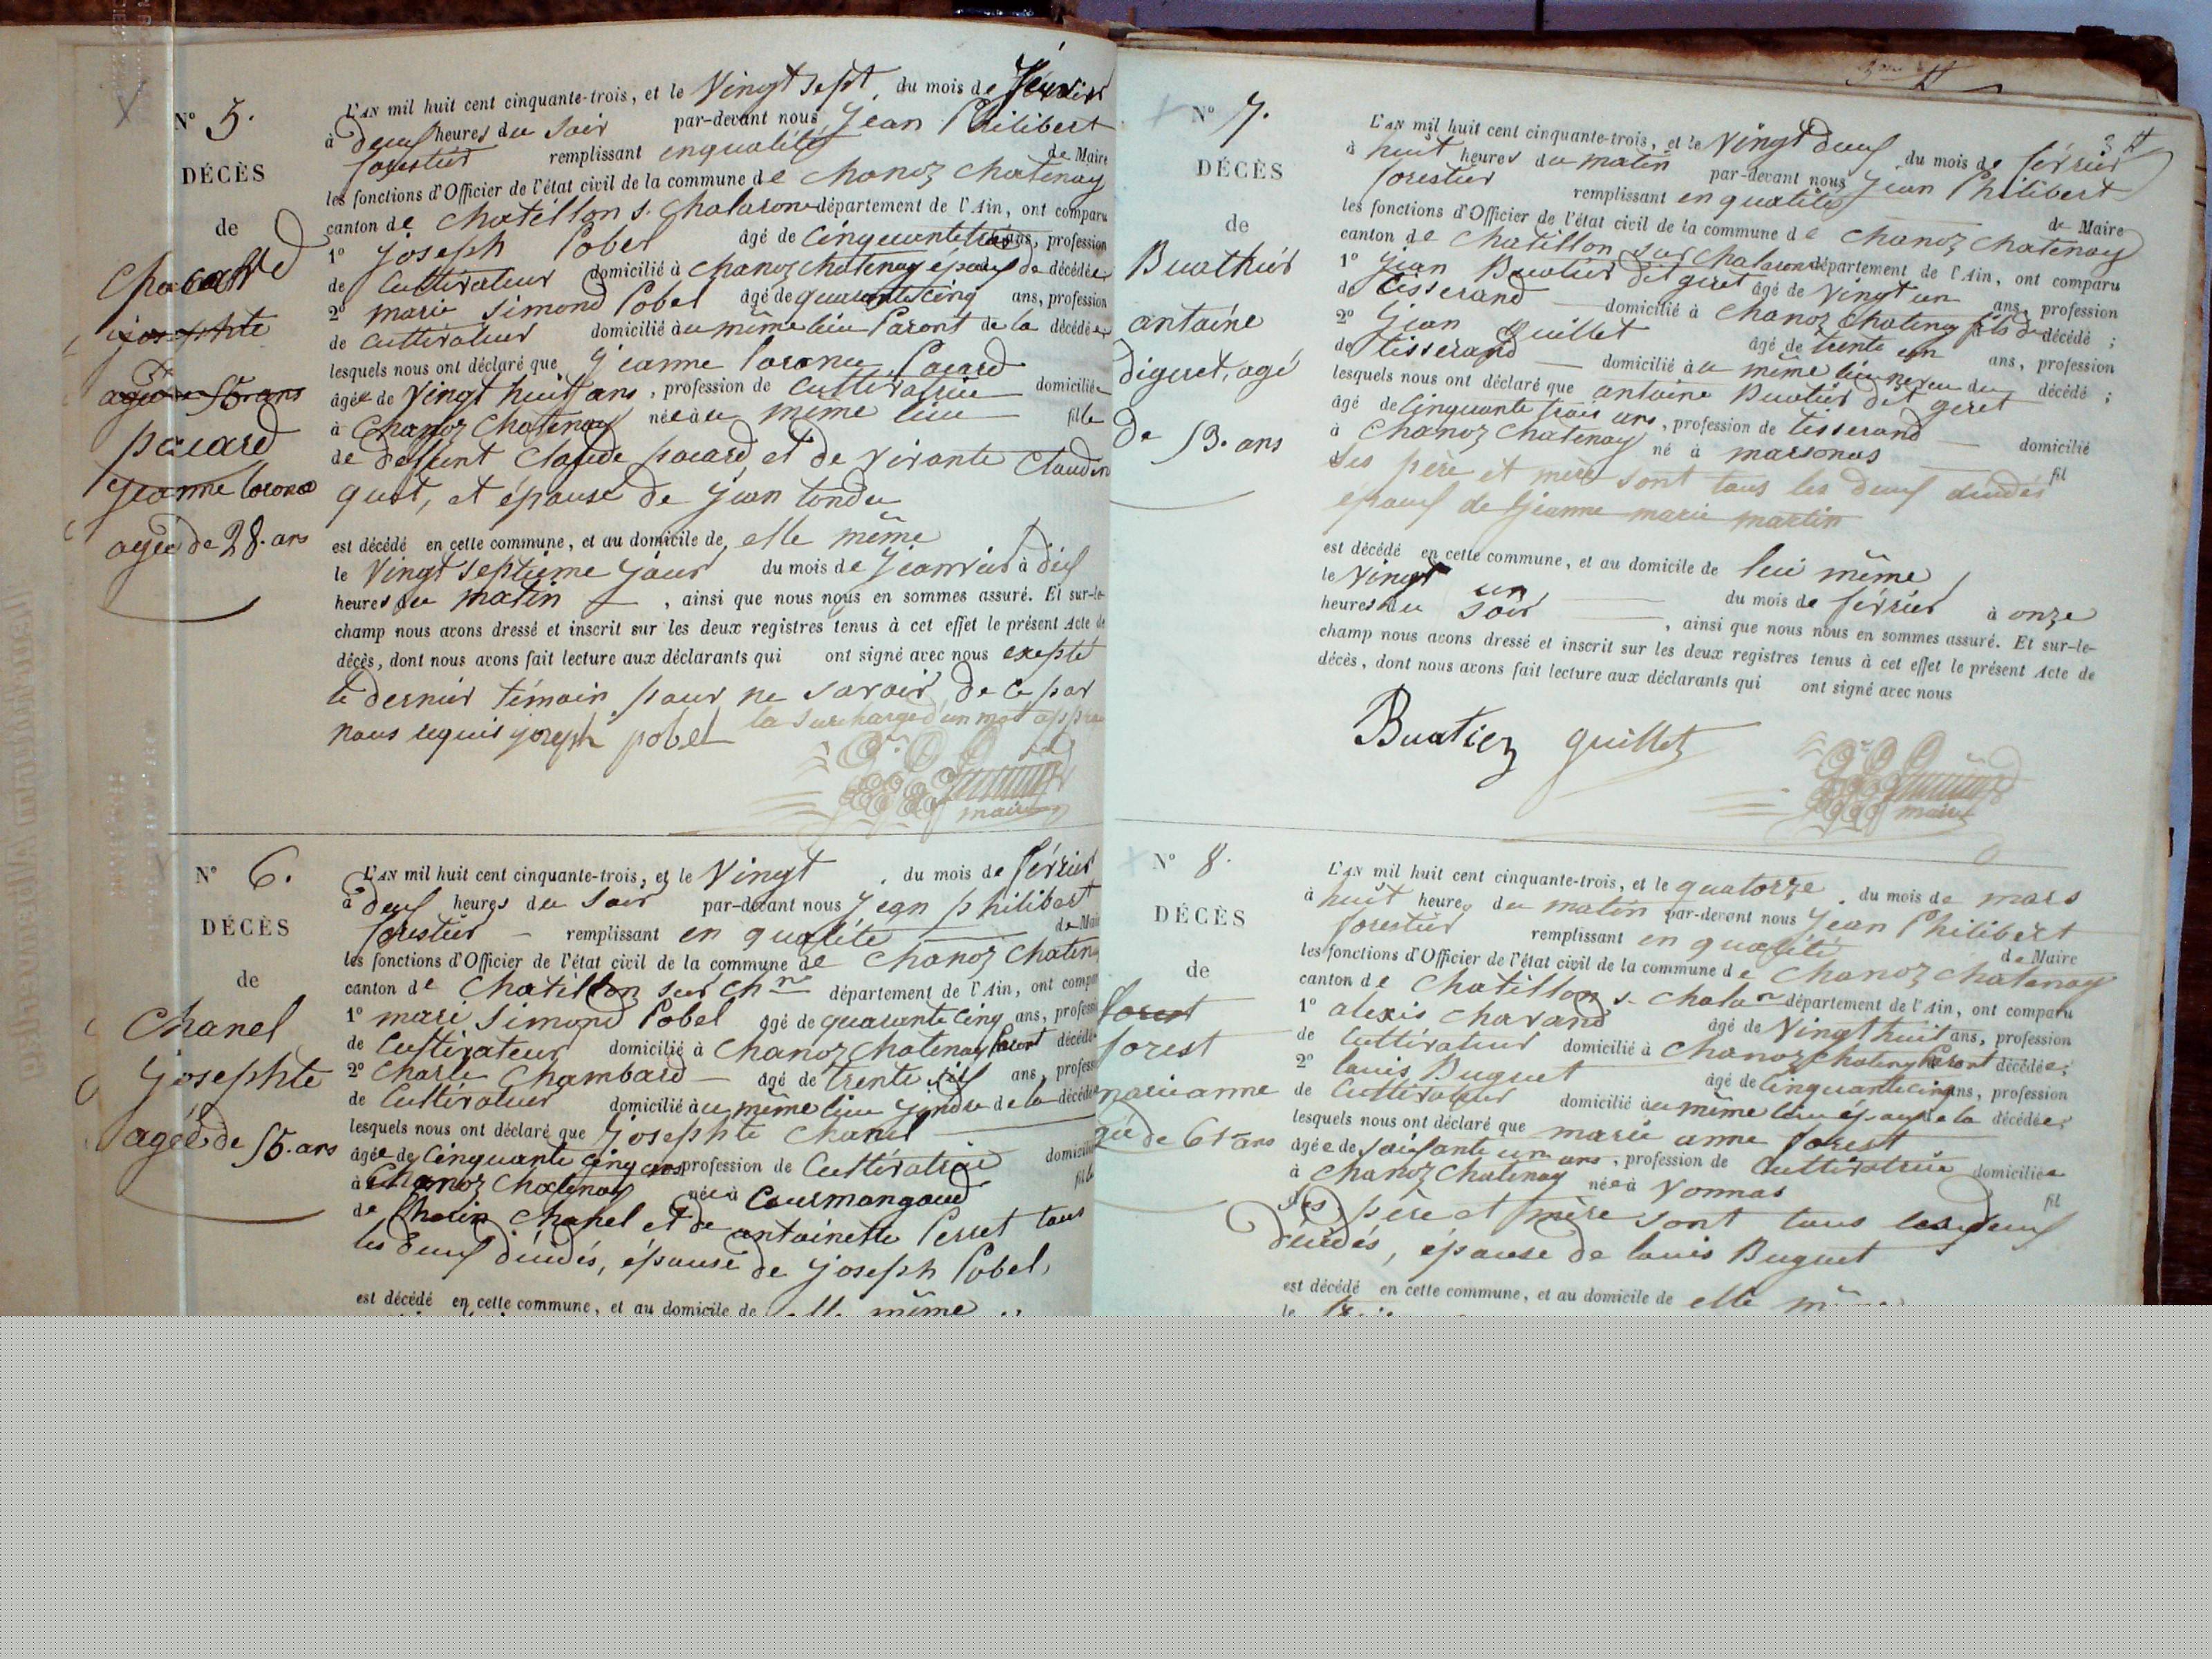 N° 5.
DÉCÈS
de
josephte
agée 55 ans
pacard
jeanne
agée de 28. ans
L'AN mil huit cent cinquante-trois, et le Vingt sept du mois de
à deux heures du soir par-devant nous Jean Philibert
forestier remplissant en qualité de Maire
les fonctions d'Officier de l'état civil de la commune de chanoz chatenay
canton de chatillon s. chalarone département de l'Ain, ont comparu
1° joseph Pobel âgé de cinquante trois ans, profession
de Cultivateur domicilié à chanoz chatenay époux de décédée
2° marie simond Pobel âgé de quarante cinq ans, profession
de cultivateur domicilié au même lieu Parent de la décédée
lesquels nous ont déclaré que jeanne Pacard
âgée de vingt huit ans, profession de cultivatrice domiciliée
à Chanoz Chatenay née au même lieu fille
de deffunt Claude pacard et de vivante Claudine
guet, et épouse de jean tondu
est décédé en cette commune, et au domicile de elle même
le vingt septième jour du mois de janvier à dix
heures du matin , ainsi que nous nous en sommes assuré. Et sur-le-
champ nous avons dressé et inscrit sur les deux registres tenus à cet effet le présent Acte de
décès, dont nous avons fait lecture aux déclarants qui ont signé avec nous excepté
le dernier témoin pour ne savoir de ce par
nous requis joseph pobel la surcharge d'un mot
maire
N° 6.
DÉCÈS
de
Chanel
josephte
agée de 55. ans
L'AN mil huit cent cinquante-trois, et le Vingt du mois de février
à deux heures du soir par-devant nous jean philibert
forestier remplissant en qualité de Mai
les fonctions d'Officier de l'état civil de la commune de chanoz chaten
canton de chatillon sur chne département de l'Ain, ont compa
1° marie simond Pobel âgé de quarante cinq ans, profess
de Cultivateur domicilié à chanoz chatenay Parent décédé
2° Charle Chambard âgé de trente six ans, profess
de Cultivateur domicilié au même lieu gendre de la décédé
lesquels nous ont déclaré que josephte Chanel
âgée de cinquante cinq ans profession de Cultivatrice domicili
à Chanoz Chatenay née à Courmangoud fille
de chanel et de antoinette Perret tous
les deux décédés, épouse de joseph Pobel,
est décédé en cette commune, et au domicile de elle même
N° 7.
DÉCÈS
de
Buathier
antoine
digeret, agé
de 53. ans
L'AN mil huit cent cinquante-trois, et le vingt deux du mois de février
à huit heures du matin par-devant nous jean Philibert
forestier remplissant en qualité de Maire
les fonctions d'Officier de l'état civil de la commune de chanoz chatenay
canton de chatillon sur chalarone département de l'Ain, ont comparu
1° jean Buatier dit geret âgé de vingt un ans, profession
de tisserand domicilié à chanoz chatenay fils du décédé ;
2° jean guillet âgé de trente un ans, profession
de tisserand domicilié au même lieu neveu du décédé ;
lesquels nous ont déclaré que antoine Buatier dit geret
âgé de cinquante trois ans, profession de tisserand domicilié
à chanoz chatenay né à marsonas fil
Ses père et mère sont tous les deux décédés
époux de jeanne marie martin
est décédé en cette commune, et au domicile de lui même
le vingt un du mois de février à onze
heures du soir , ainsi que nous nous en sommes assuré. Et sur-le-
champ nous avons dressé et inscrit sur les deux registres tenus à cet effet le présent Acte de
décès, dont nous avons fait lecture aux déclarants qui ont signé avec nous
Buatier guillet
maire
N° 8.
DÉCÈS
de
forest
forest
marie anne
gée de 61 ans
L'AN mil huit cent cinquante-trois, et le quatorze du mois de mars
à huit heures du matin par-devant nous jean Philibert
forestier remplissant en qualité de Maire
les fonctions d'Officier de l'état civil de la commune de chanoz chatenay
canton de chatillon s. chalarne département de l'Ain, ont comparu
1° alexis chavand âgé de vingt huit ans, profession
de cultivateur domicilié à chanoz chatenay Parent décédée ;
2° louis Buguet âgé de cinquante cinq ans, profession
de Cultivateur domicilié au même lieu époux de la décédée ;
lesquels nous ont déclaré que marie anne forest
âgée de soixante un ans, profession de Cultivatrice domiciliée
à chanoz chatenay née à Vonnas fil
ses père et mère sont tous les deux
décédés, épouse de louis Buguet
est décédé en cette commune, et au domicile de elle même
le